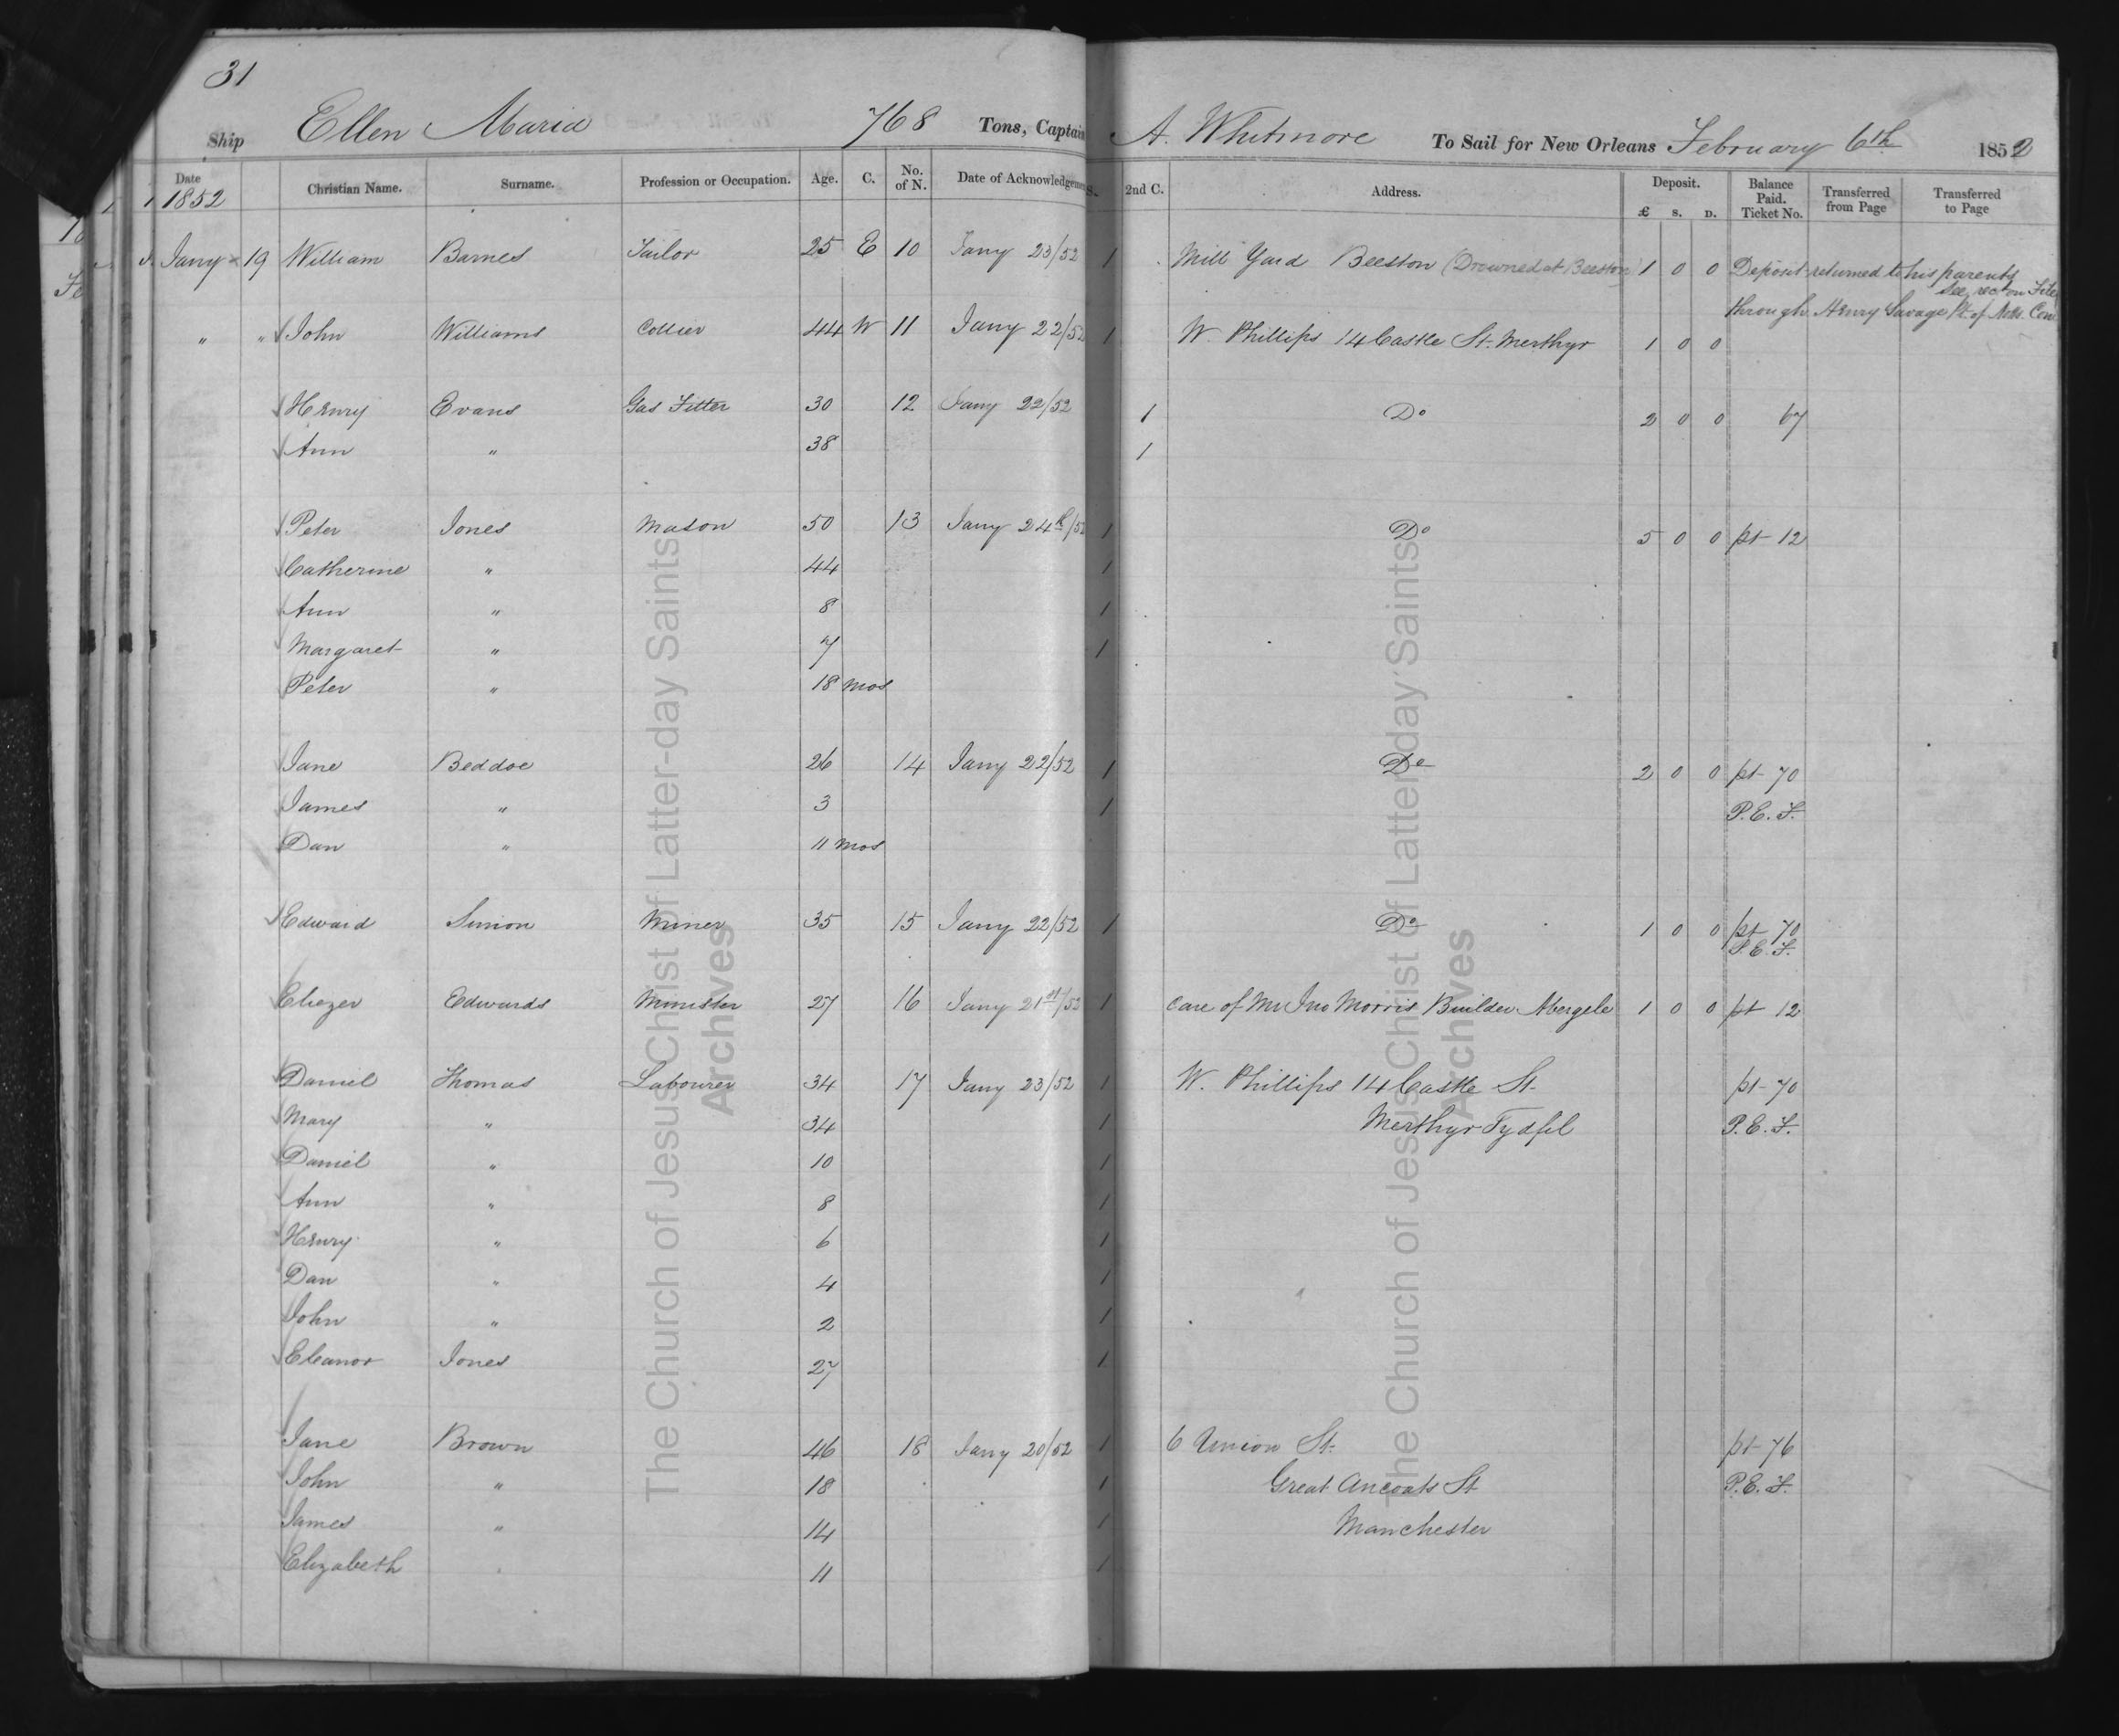 31
Ship Ellen Maria 768 Tons, Captain A. Whitmore To Sail for New Orleans February 6th 1852
Date Christian Name. Surname. Profession or Occupation. Age. C. No. of N. Date of Acknowledgement 2nd C. Address. Deposit. £ S. D. Balance Paid. Ticket No. Transferred from Page Transferred to Page
1852
Jany 19 William Barnes Tailor 25 E 10 Jany 23/52 1 Mill Yard Beeston (Drowned at Beeston) 1 0 0 Deposit returned to his parents
See rect on File
through Henry Savage Pt. of
" " John Williams Collier 44 W 11 Jany 22/52 1 W. Phillips 14 Castle St. Merthyr 1 0 0
Henry Evans Gas Fitter 30 12 Jany 22/52 1 Do 2 0 0 67
Ann " 38 1
Peter Jones Mason 50 13 Jany 24th/52 1 Do 5 0 0 pt 12
Catherine " 44 1
Ann " 8 1
Margaret " 7 1
Peter " 18 mos
Jane Beddoe 26 14 Jany 22/52 1 Do 2 0 0 pt 70
James " 3 1 P.E.F.
Dan " 11 mos
Edward Simon Miner 35 15 Jany 22/52 1 Do 1 0 0 pt 70
P.E.F.
Eliezer Edwards Minister 27 16 Jany 21st/52 1 Care of Mr Jno Morris Builder Abergele 1 0 0 pt 12
Daniel Thomas Labourer 34 17 Jany 23/52 1 W. Phillips 14 Castle St. pt 70
Mary " 34 1 Merthyr Tydfil P.E.F.
Daniel " 10 1
Ann " 8 1
Henry " 6 1
Dan " 4 1
John " 2 1
Eleanor Jones 27 1
Jane Brown 46 18 Jany 20/52 1 6 Union St. pt 76
John " 18 1 Great Ancoats St P.E.F.
James " 14 1 Manchester
Elizabeth 11 1
The Church of Jesus Christ of Latter-day Saints
Archives
The Church of Jesus Christ of Latter-day Saints
Archives